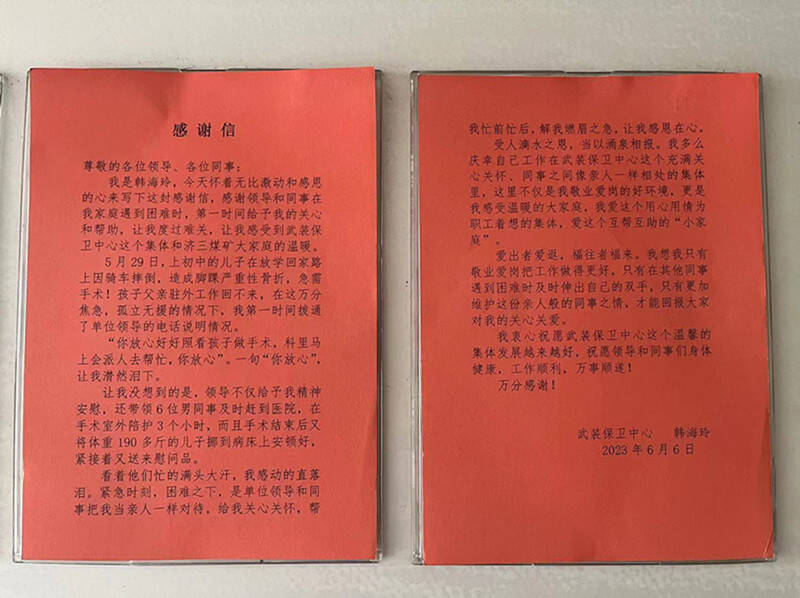 感谢信
尊敬的各位领导、各位同事：
我是韩海玲，今天怀着无比激动和感恩
的心来写下这封感谢信，感谢领导和同事在
我家庭遇到困难时，第一时间给予我的关心
和帮助，让我度过难关，让我感受到武装保
卫中心这个集体和济三煤矿大家庭的温暖。
5 月 29 日，上初中的儿子在放学回家路
上因骑车摔倒，造成脚踝严重性骨折，急需
手术！孩子父亲驻外工作回不来，在这万分
焦急，孤立无援的情况下，我第一时间拨通
了单位领导的电话说明情况。
“你放心好好照看孩子做手术，科里马
上会派人去帮忙，你放心”。一句“你放心”，
让我潸然泪下。
让我没想到的是，领导不仅给予我精神
安慰，还带领 6 位男同事及时赶到医院，在
手术室外陪护 3 个小时，而且手术结束后又
将体重 190 多斤的儿子挪到病床上安顿好，
紧接着又送来慰问品。
看着他们忙的满头大汗，我感动的直落
泪。紧急时刻，困难之下，是单位领导和同
事把我当亲人一样对待，给我关心关怀，帮
我忙前忙后，解我燃眉之急，让我感恩在心。
受人滴水之恩，当以涌泉相报。我多么
庆幸自己工作在武装保卫中心这个充满关
心关怀、同事之间像亲人一样相处的集体
里，这里不仅是我敬业爱岗的好环境，更是
我感受温暖的大家庭，我爱这个用心用情为
职工着想的集体，爱这个互帮互助的“小家
庭”。
爱出者爱返，福往者福来。我想我只有
敬业爱岗把工作做得更好，只有在其他同事
遇到困难时及时伸出自己的双手，只有更加
维护这份亲人般的同事之情，才能回报大家
对我的关心关爱。
我衷心祝愿武装保卫中心这个温馨的
集体发展越来越好，祝愿领导和同事们身体
健康，工作顺利，万事顺遂！
万分感谢！
武装保卫中心 韩海玲
2023 年 6 月 6 日